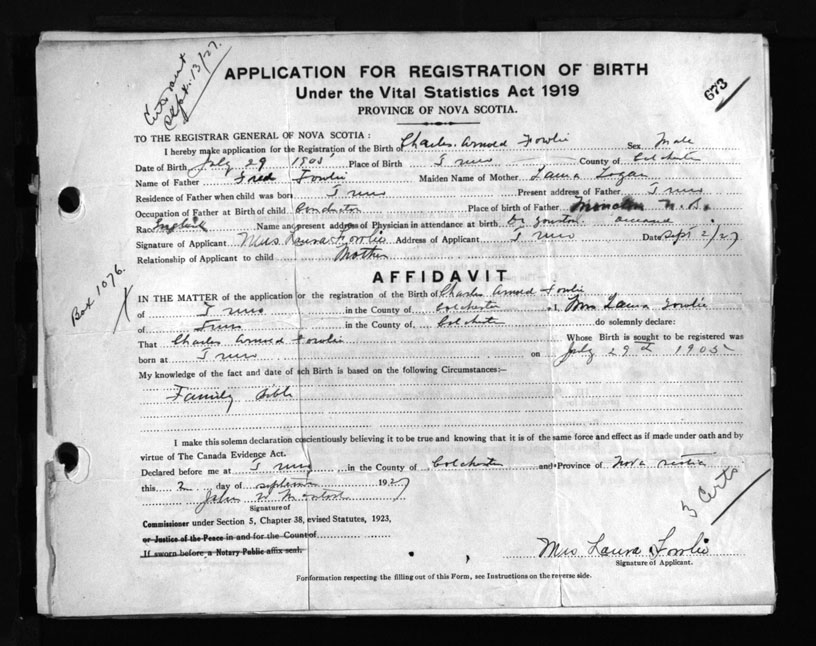 Certs sent
Sept. 13/27.
APPLICATION FOR REGISTRATION OF BIRTH
Under the Vital Statistics Act 1919
PROVINCE OF NOVA SCOTIA.
673
TO THE REGISTRAR GENERAL OF NOVA SCOTIA:
I hereby make application for the Registration of the Birth of Charles Arnold Fowlie Sex Male
Date of Birth July 29 1905 Place of Birth Truro County of Colchester
Name of Father Fred Fowlie Maiden Name of Mother Laura Logan
Residence of Father when child was born Truro Present address of Father Truro
Occupation of Father at Birth of child Conductor Place of birth of Father Moncton N.B.
Rac English Name and present address of Physician in attendance at birth Dr
Signature of Applicant Mrs Laura Fowlie Address of Applicant Truro Date Sept 2/27
Relationship of Applicant to child Mother
Box 1076.
AFFIDAVIT
IN THE MATTER of the application or the registration of the Birth of Charles Arnold Fowlie
of Truro in the County of Colchester I, Mrs Laura Fowlie
of Truro in the County of Colchester do solemnly declare:
That Charles Arnold Fowlie Whose Birth is sought to be registered was
born at Truro on July 29th 1905
My knowledge of the fact and date of sch Birth is based on the following Circumstances:-
Family Bible
I make this solemn declaration coscientiously believing it to be true and knowing that it is of the same force and effect as if made under oath and by
virtue of The Canada Evidence Act.
Declared before me at Truro in the County of Colchester and Province of Nova Scotia
this 2 day of September 1927
John
Signature of
Commissioner under Section 5, Chapter 38, evised Statutes, 1923,
or Justice of the Peace in and for the Count of
If sworn before a Notary Public affix seal.
3 Certs
Mrs Laura Fowlie
Signature of Applicant.
For information respecting the filling out of this Form, see Instructions on the reverse side.